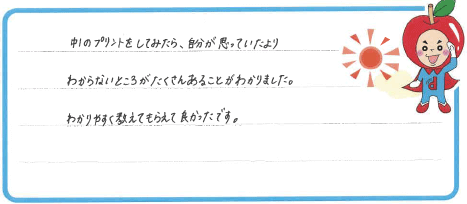 中1のプリントをしてみたら、自分が思っていたより
わからないところがたくさんあることがわかりました。
わかりやすく教えてもらえて良かったです。